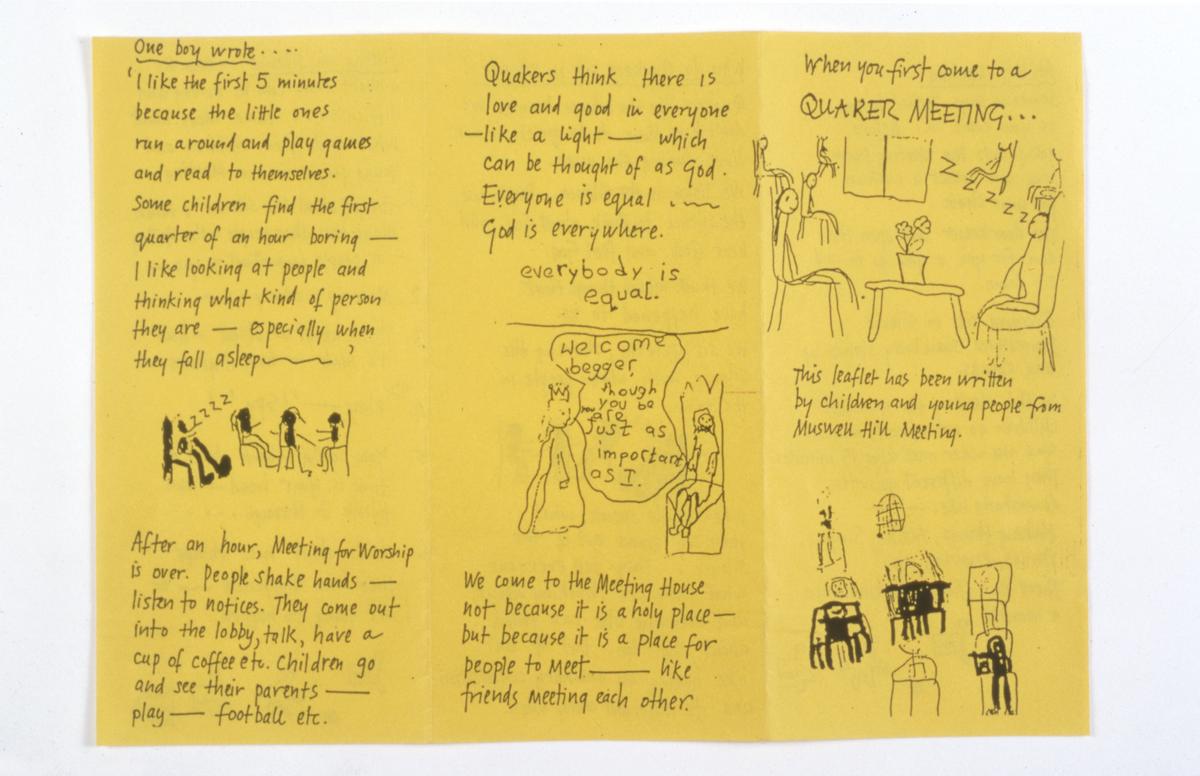 One boy wrote....
'I like the first 5 minutes
because the little ones
run around and play games
and read to themselves.
Some children find the first
quarter of an hour boring —
I like looking at people and
thinking what kind of person
they are — especially when
they fall asleep——— '
zzzzz
After an hour, Meeting for Worship
is over. People shake hands —
listen to notices. They come out
into the lobby, talk, have a
cup of coffee etc. Children go
and see their parents —
play — football etc.
Quakers think there is
love and good in everyone
—like a light — which
can be thought of as God.
Everyone is equal .—
God is everywhere.
everybody is
equal.
welcome
begger,
though
you be
you are
just as
important
as I.
We come to the Meeting House
not because it is a holy place—
but because it is a place for
people to meet —— like
friends meeting each other.
When you first come to a
QUAKER MEETING...
Z Z Z Z Z Z
This leaflet has been written
by children and young people from
Muswell Hill Meeting.